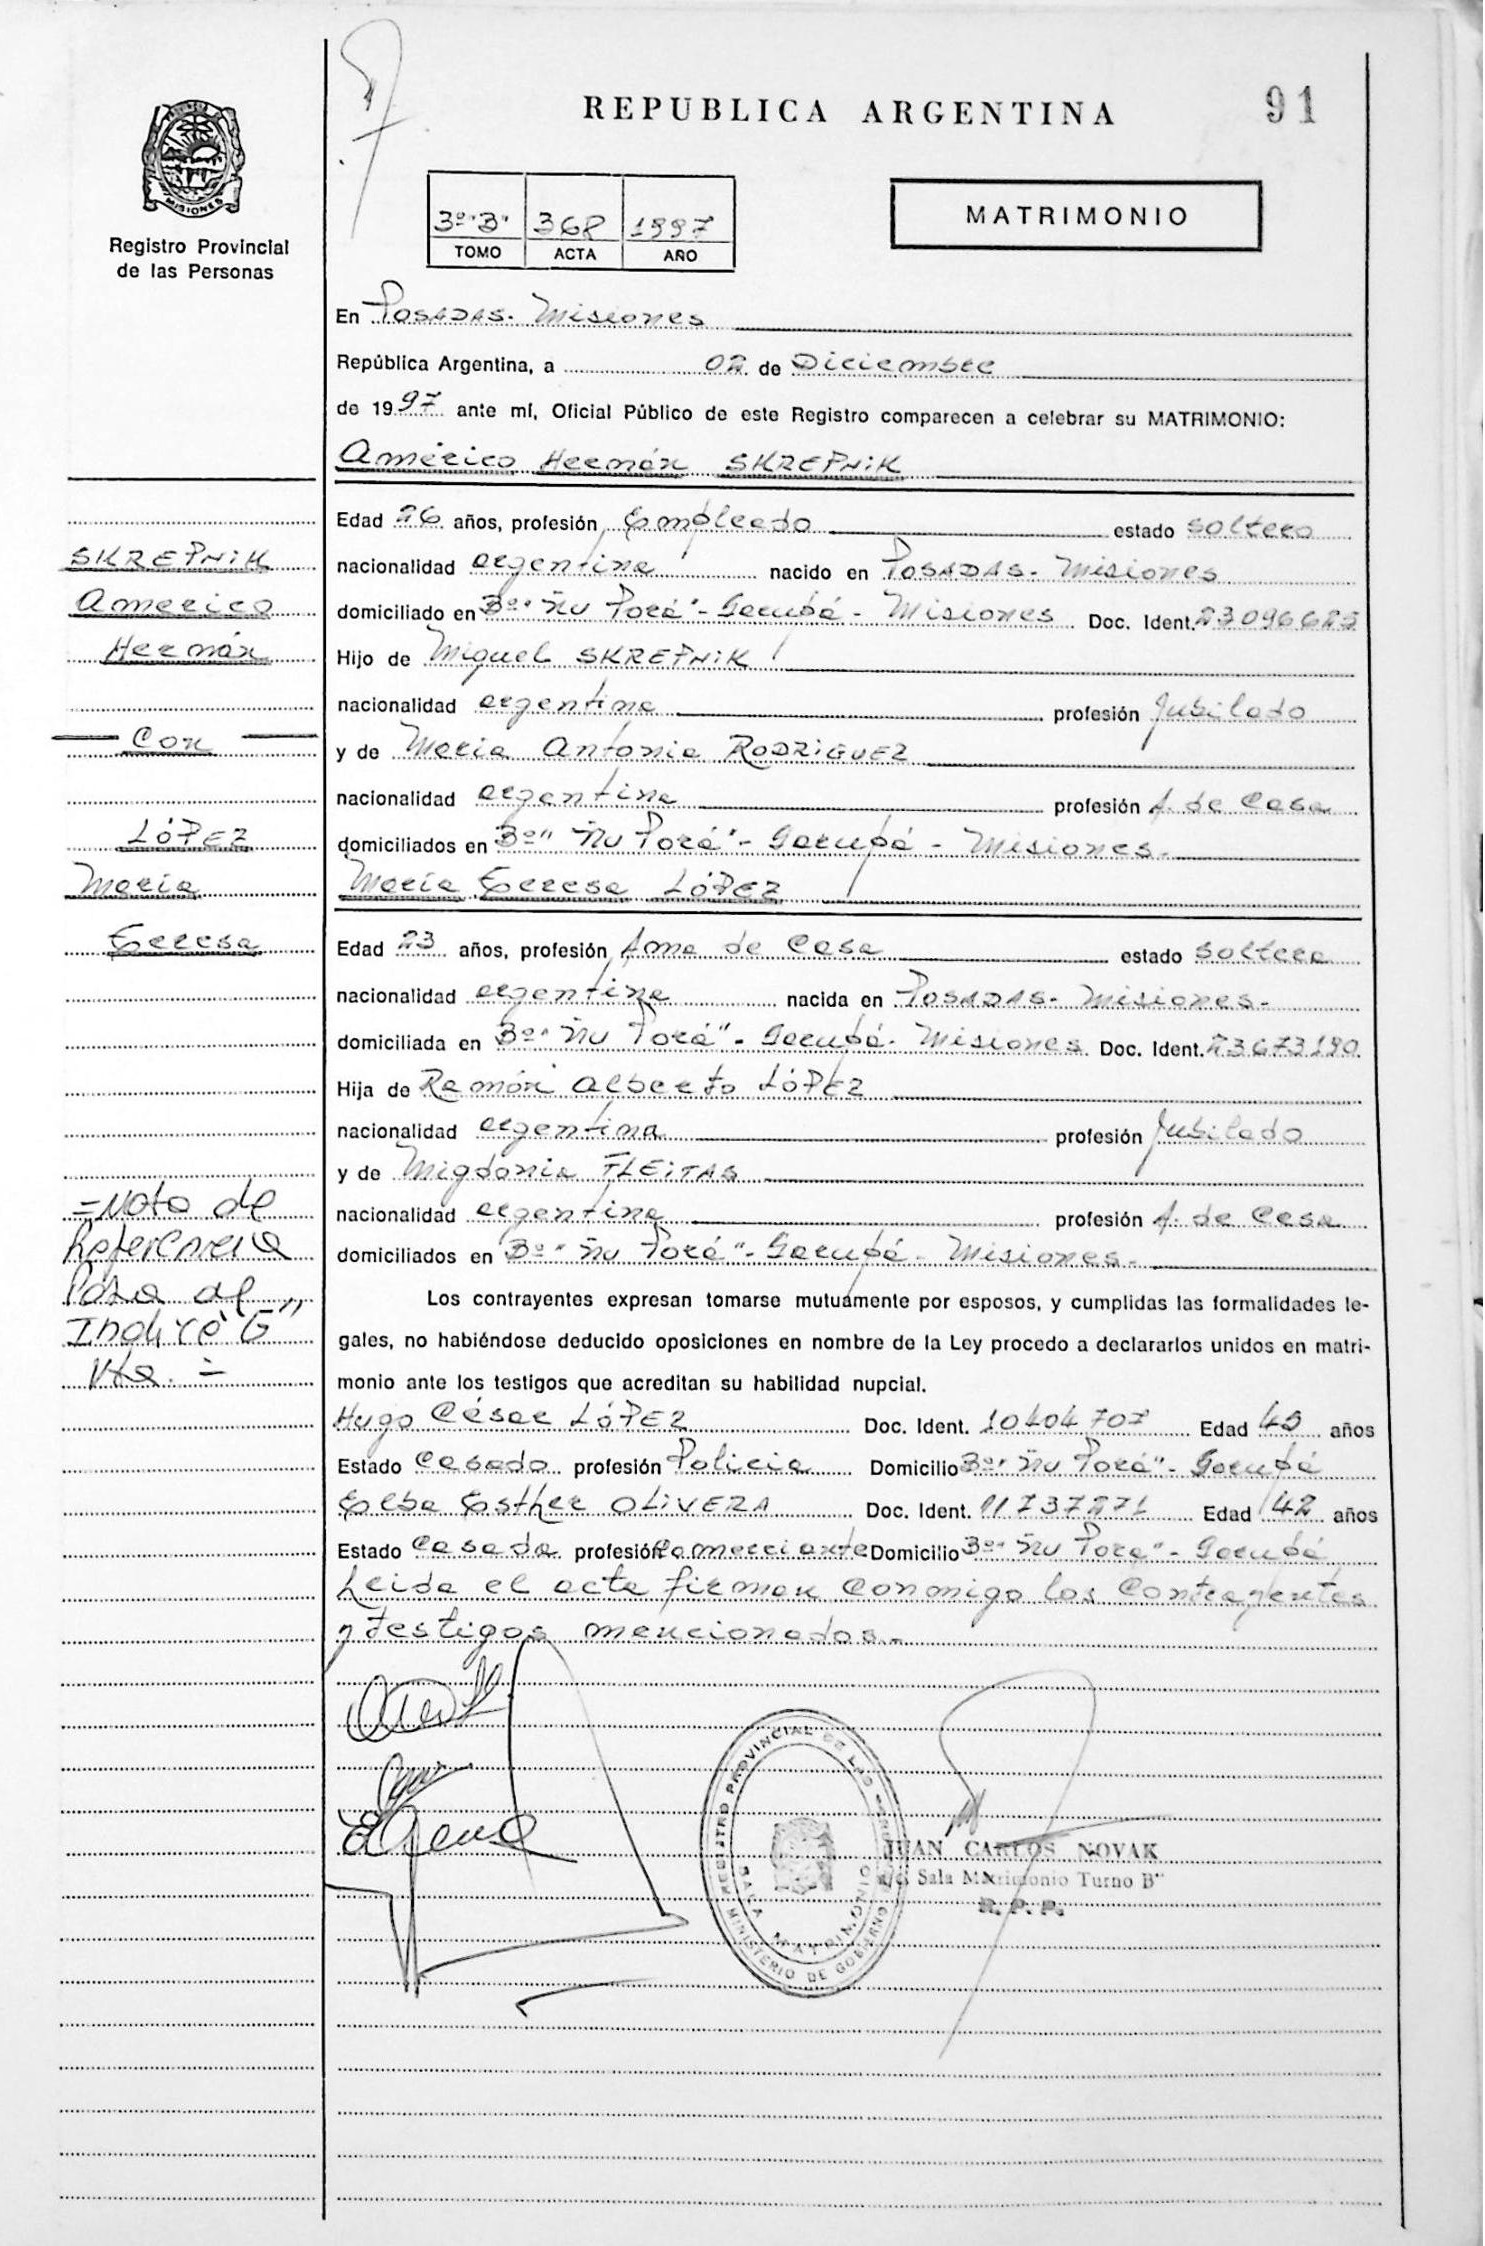 REPUBLICA ARGENTINA
91
MISIONES
Registro Provincial
de las Personas
3º "B" 368 1997
TOMO ACTA AÑO
MATRIMONIO
En POSADAS - Misiones
República Argentina, a 02 de Diciembre
de 1997 ante mí, Oficial Público de este Registro comparecen a celebrar su MATRIMONIO:
Américo Hernán SKREPNIK
Edad 26 años, profesión Empleado estado soltero
nacionalidad argentina nacido en POSADAS - Misiones
domiciliado en Bº "Ñu Porá" - Garupá - Misiones Doc. Ident. 23096625
Hijo de Miguel SKREPNIK
nacionalidad argentina profesión Jubilado
y de María Antonia RODRIGUEZ
nacionalidad argentina profesión A. de Casa
domiciliados en Bº "Ñu Porá" - Garupá - Misiones -
María Teresa LÓPEZ
Edad 23 años, profesión Ama de Casa estado soltera
nacionalidad argentina nacida en POSADAS - Misiones -
domiciliada en Bº "Ñu Porá" - Garupá - Misiones Doc. Ident. 23673190
Hija de Ramón Alberto LÓPEZ
nacionalidad argentina profesión Jubilado
y de Migdonia FLEITAS
nacionalidad argentina profesión A. de Casa
domiciliados en Bº "Ñu Porá" - Garupá - Misiones -
Los contrayentes expresan tomarse mutuamente por esposos, y cumplidas las formalidades le-
gales, no habiéndose deducido oposiciones en nombre de la Ley procedo a declararlos unidos en matri-
monio ante los testigos que acreditan su habilidad nupcial.
Hugo César LÓPEZ Doc. Ident. 10404707 Edad 45 años
Estado Casado profesión Policia Domicilio Bº "Ñu Porá" - Garupá
Elba Esther OLIVERA Doc. Ident. 11737271 Edad 42 años
Estado Casada profesión Comerciante Domicilio Bº "Ñu Pora" - Garupá
Leida el acta firman conmigo los contrayentes
y testigos mencionados.-
SKREPNIK
Americo
Hernán
Con
LÓPEZ
María
Teresa
=Nota de
Referencia
Pasa al
Indice "G"
Vta. =
REGISTRO PROVINCIAL DE LAS
MINISTERIO DE GOBIERNO
SALA MATRIMONIO
JUAN CARLOS NOVAK
a/c. Sala Matrimonio Turno B"
R. P. P.